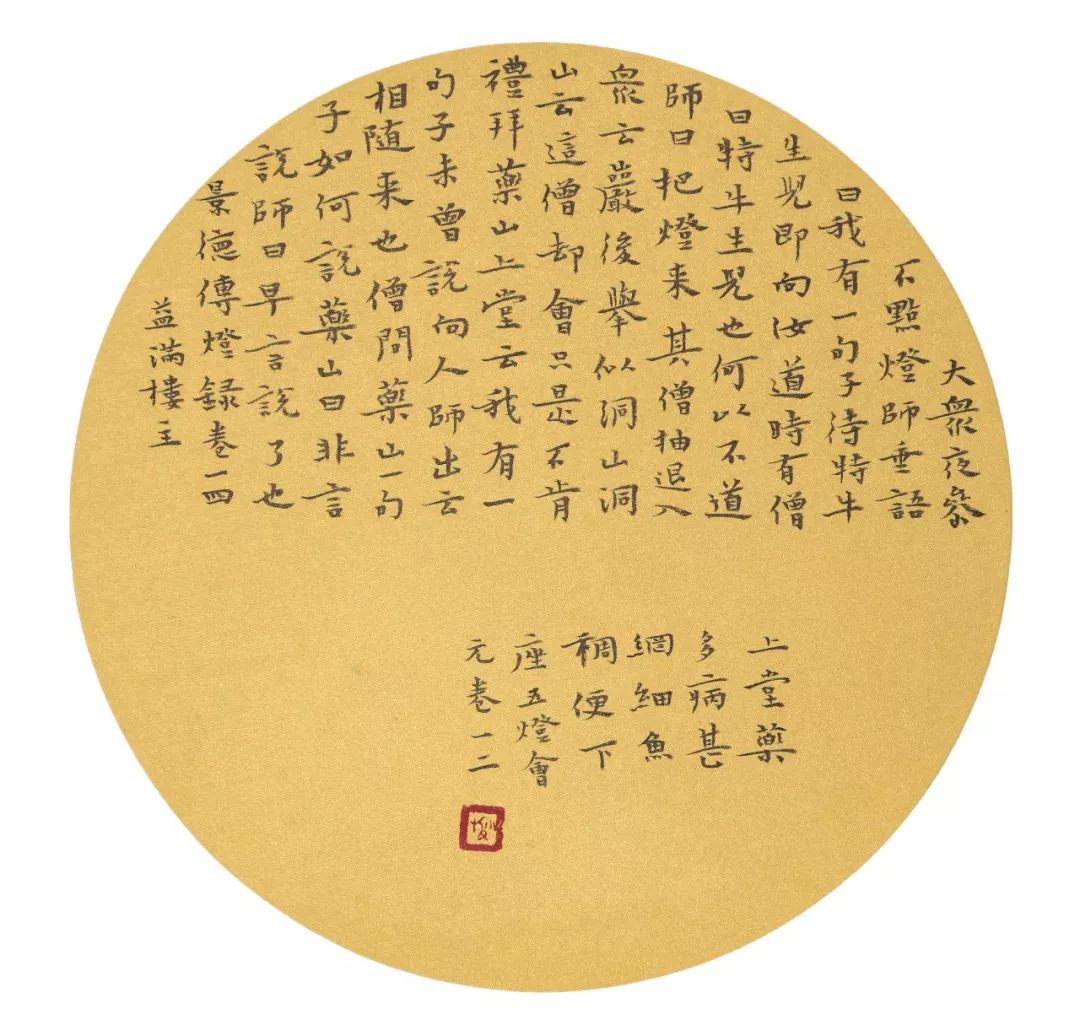 大衆夜參
不點燈師垂語
曰我有一句子待特牛
生兒即向汝道時有僧
曰特牛生兒也何以不道
師曰把燈来其僧抽退入
衆云巖後舉似洞山洞
山云這僧却會只是不肯
禮拜藥山上堂云我有一
句子未曾説向人師出云
相随来也僧問藥山一句
子如何説藥山曰非言
説師曰早言説了也
景德傳燈録卷一四
益滿樓主
上堂藥
多病甚
網細魚
稠便下
座五燈會
元卷一二